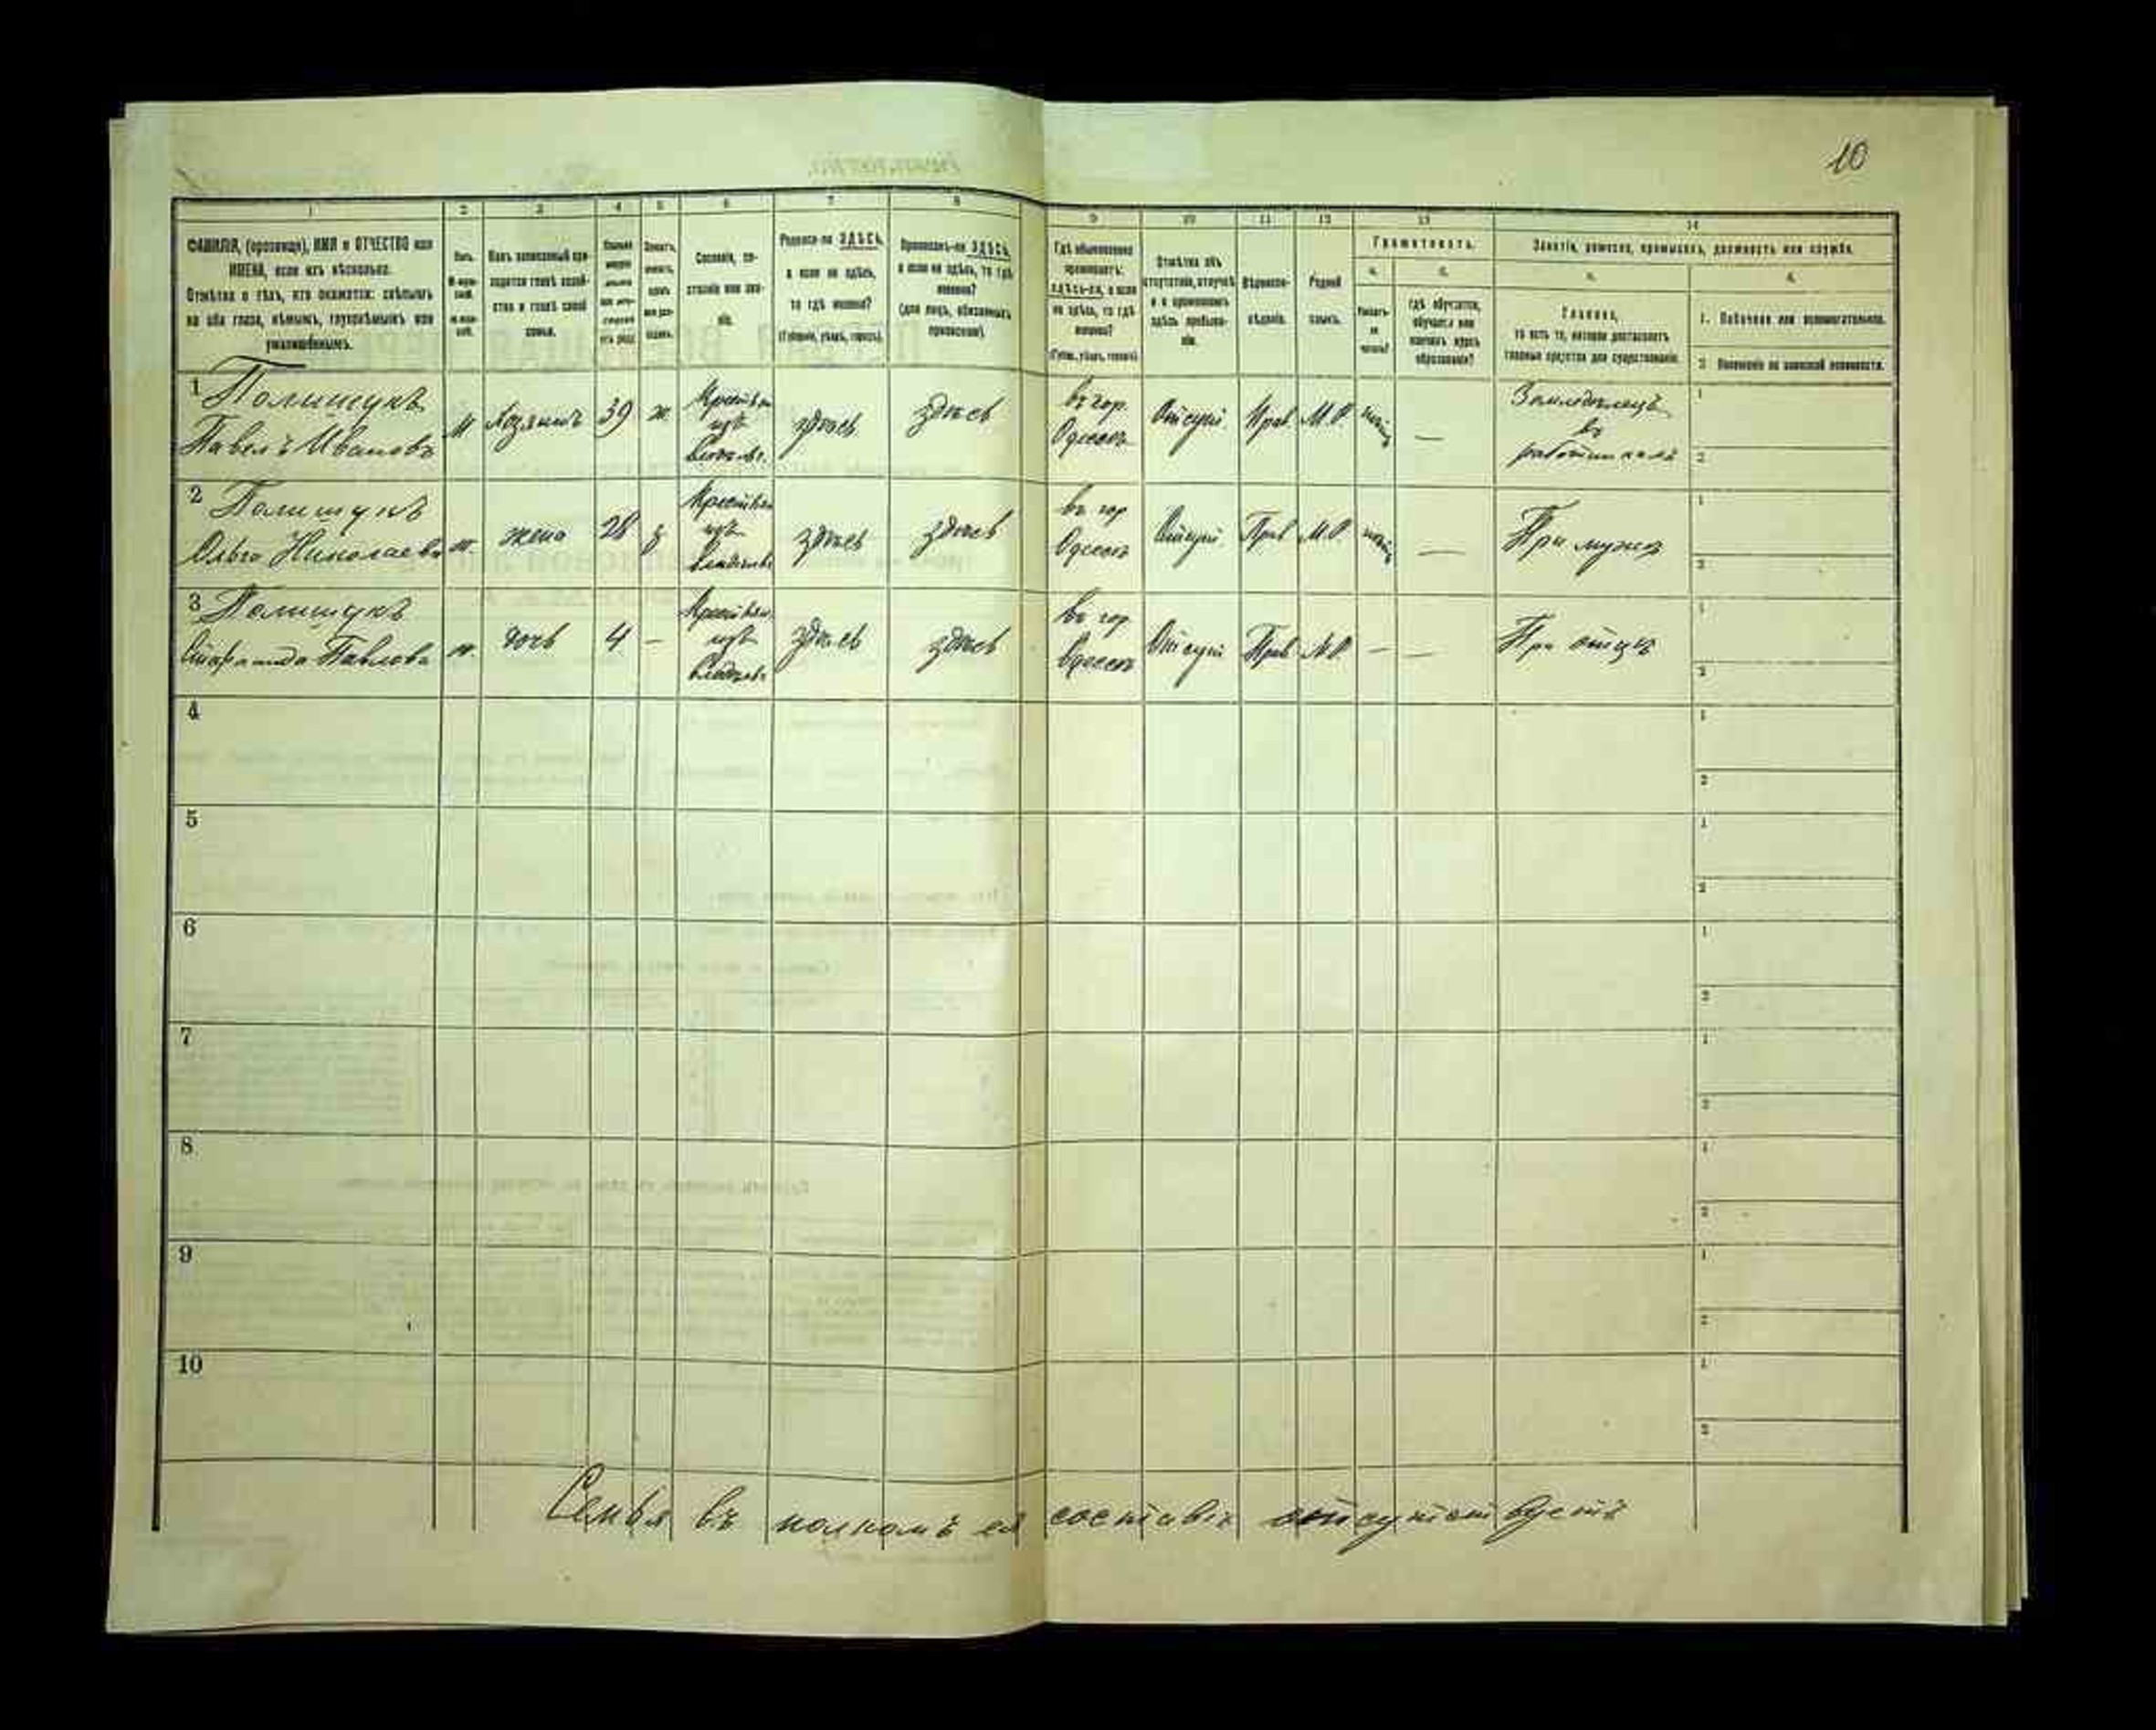 10
1 2 3 4 5 6 7 8 9 10 11 12 13 14
ФАМИЛІЯ, (прозвище), ИМЯ и ОТЧЕСТВО или
ИМЕНА, если ихъ нѣсколько.
Отмѣтка о тѣхъ, кто окажется: слѣпымъ
на оба глаза, нѣмымъ, глухонѣмымъ или
умалишённымъ.
Полъ.
Какъ записанный при-
ходится главѣ хозяй-
ства и главѣ своей
семьи.
Сословіе, со-
стояніе или зва-
ніе.
Родился-ли ЗДѢСЬ,
а если не здѣсь,
то гдѣ именно?
(Губернія, уѣздъ, городъ).
Приписанъ-ли ЗДѢСЬ,
а если не здѣсь, то гдѣ
именно?
(для лицъ, обязанныхъ
припиской).
Гдѣ обыкновенно
проживаетъ:
здѣсь-ли, а если
не здѣсь, то гдѣ
именно?
(Губер., уѣздъ, городъ).
Отмѣтка объ
отсутствіи, отлучкѣ
и о временномъ
здѣсь пребыва-
ніи.
Вѣроиспо-
вѣданіе.
Родной
языкъ.
Грамотность.
а. б.
Умѣетъ-
ли
читать?
гдѣ обучается,
обучался или
кончилъ курсъ
образованія?
Занятіе, ремесло, промыселъ, должность или служба.
а. б.
Главное,
то есть то, которое доставляетъ
главныя средства для существованія.
1. Побочное или вспомогательное.
2. Положеніе по воинской повинности.
1 Полищукъ
Павелъ Ивановъ
м Хозяинъ 39 ж
Крестьян
изъ
здѣсь здѣсь
въ гор.
Одессѣ
Отсут. Прав. М.Р. —
Земледѣлецъ
въ
работникахъ
1
2
2 Полищукъ
Ольга Николаева
ж. жена 28 з
Крестьян
изъ
здѣсь здѣсь
въ гор
Одессѣ
Отсут. Прав М.Р. —
При мужѣ
1
2
3 Полищукъ
Павлова
ж. дочь 4 —
Крестьян
изъ
здѣсь здѣсь
въ гор
Одессѣ
Отсут Прав М.Р. — —
При отцѣ
1
2
4
1
2
5
1
2
6
1
2
7
1
2
8
1
2
9
1
2
10
1
2
Семья въ полномъ ея составѣ отсутствуетъ